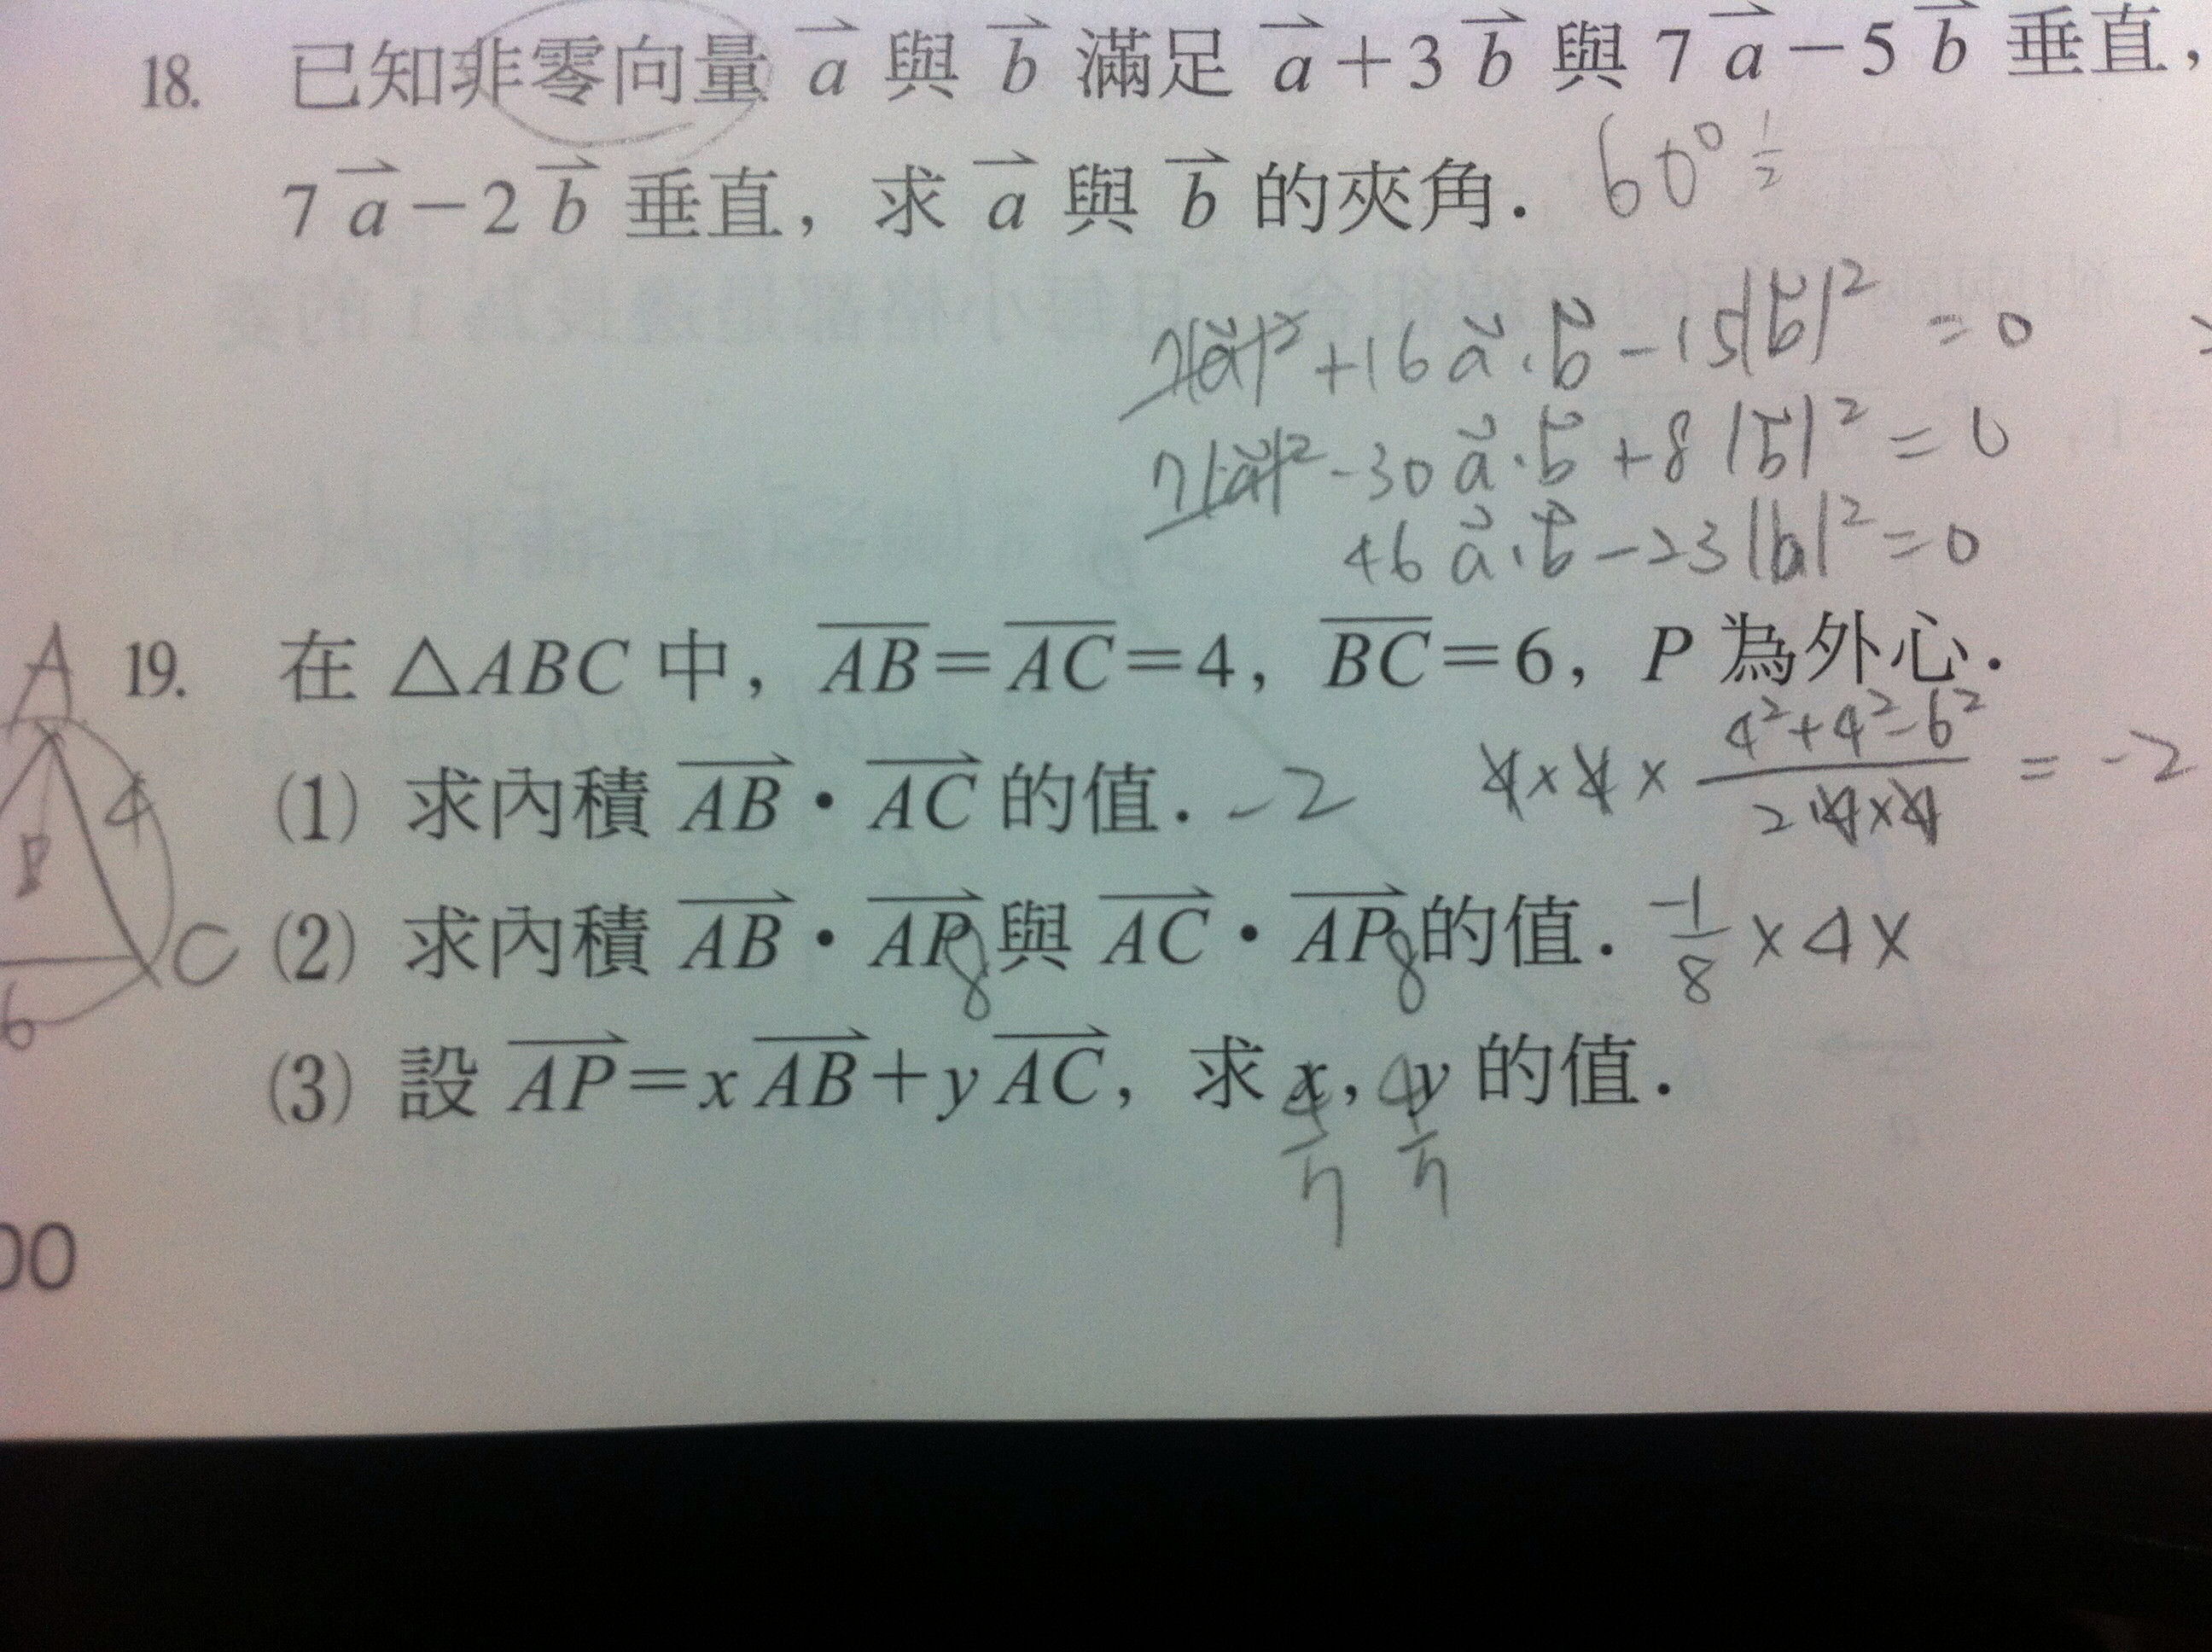 18. 已知非零向量 a 與 b 滿足 a+3b 與 7a−5b 垂直,
7a−2b 垂直, 求 a 與 b 的夾角. 60° 1/2
7|a|²+16a·b−15|b|²=0
7|a|²−30a·b+8|b|²=0
46a·b−23|b|²=0
19. 在 △ABC 中, AB=AC=4, BC=6, P 為外心.
(1) 求內積 AB·AC 的值. −2 4×4×(4²+4²−6²)/(2×4×4) = −2
(2) 求內積 AB·AP 8 與 AC·AP 8 的值. −1/8 ×4×
(3) 設 AP=xAB+yAC, 求 x, y 的值.
4/7 4/7
A
4
P
C
6
00